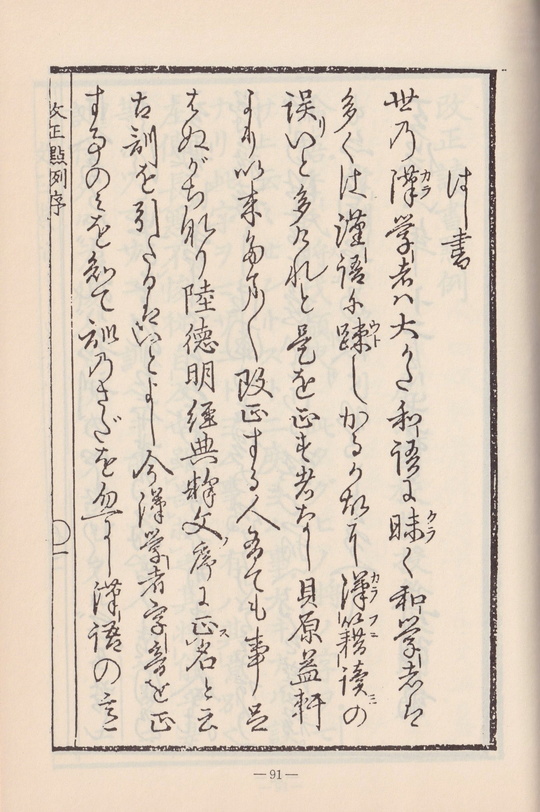 はし書
世乃漢学者ハ大かた和語に昧く和学者は
多くは漢語に踈しかるか故に漢籍読の
誤りいと多かれと是を正す者なし貝原益軒
より以来 改正する人有ても事足
はぬがち也陸德明經典釋文ノ序に正名と云
古訓を引たるはいとよし今漢学者字音を正
するのミを知て訓乃さたを忽にし漢語の意
改正點列序
一
—91—